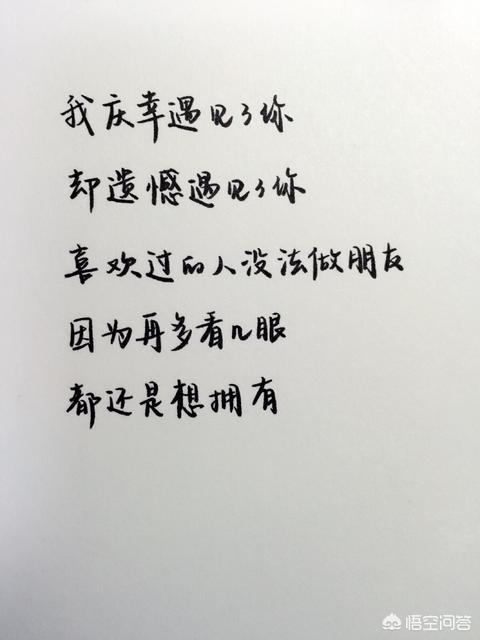 我庆幸遇见了你
却遗憾遇见了你
喜欢过的人没法做朋友
因为再多看几眼
都还是想拥有
悟空问答